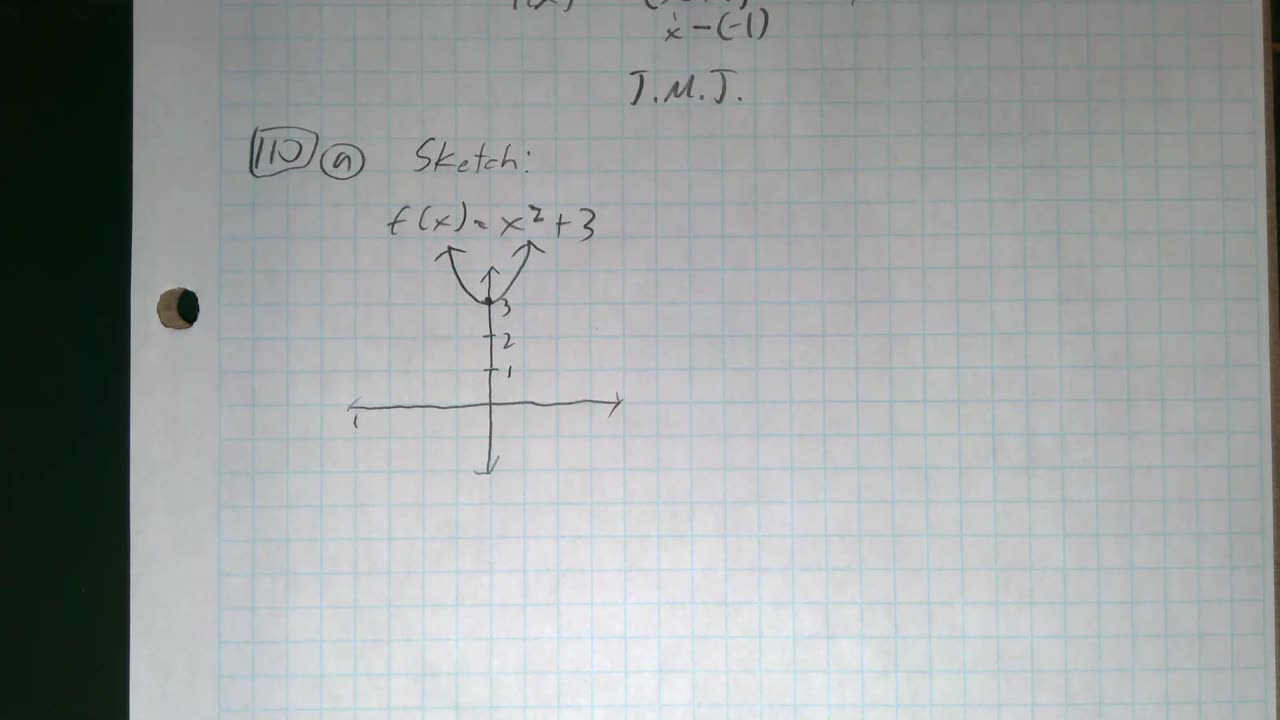 x-(-1)
J.M.J.
110 a Sketch:
f(x)=x²+3
3
2
1